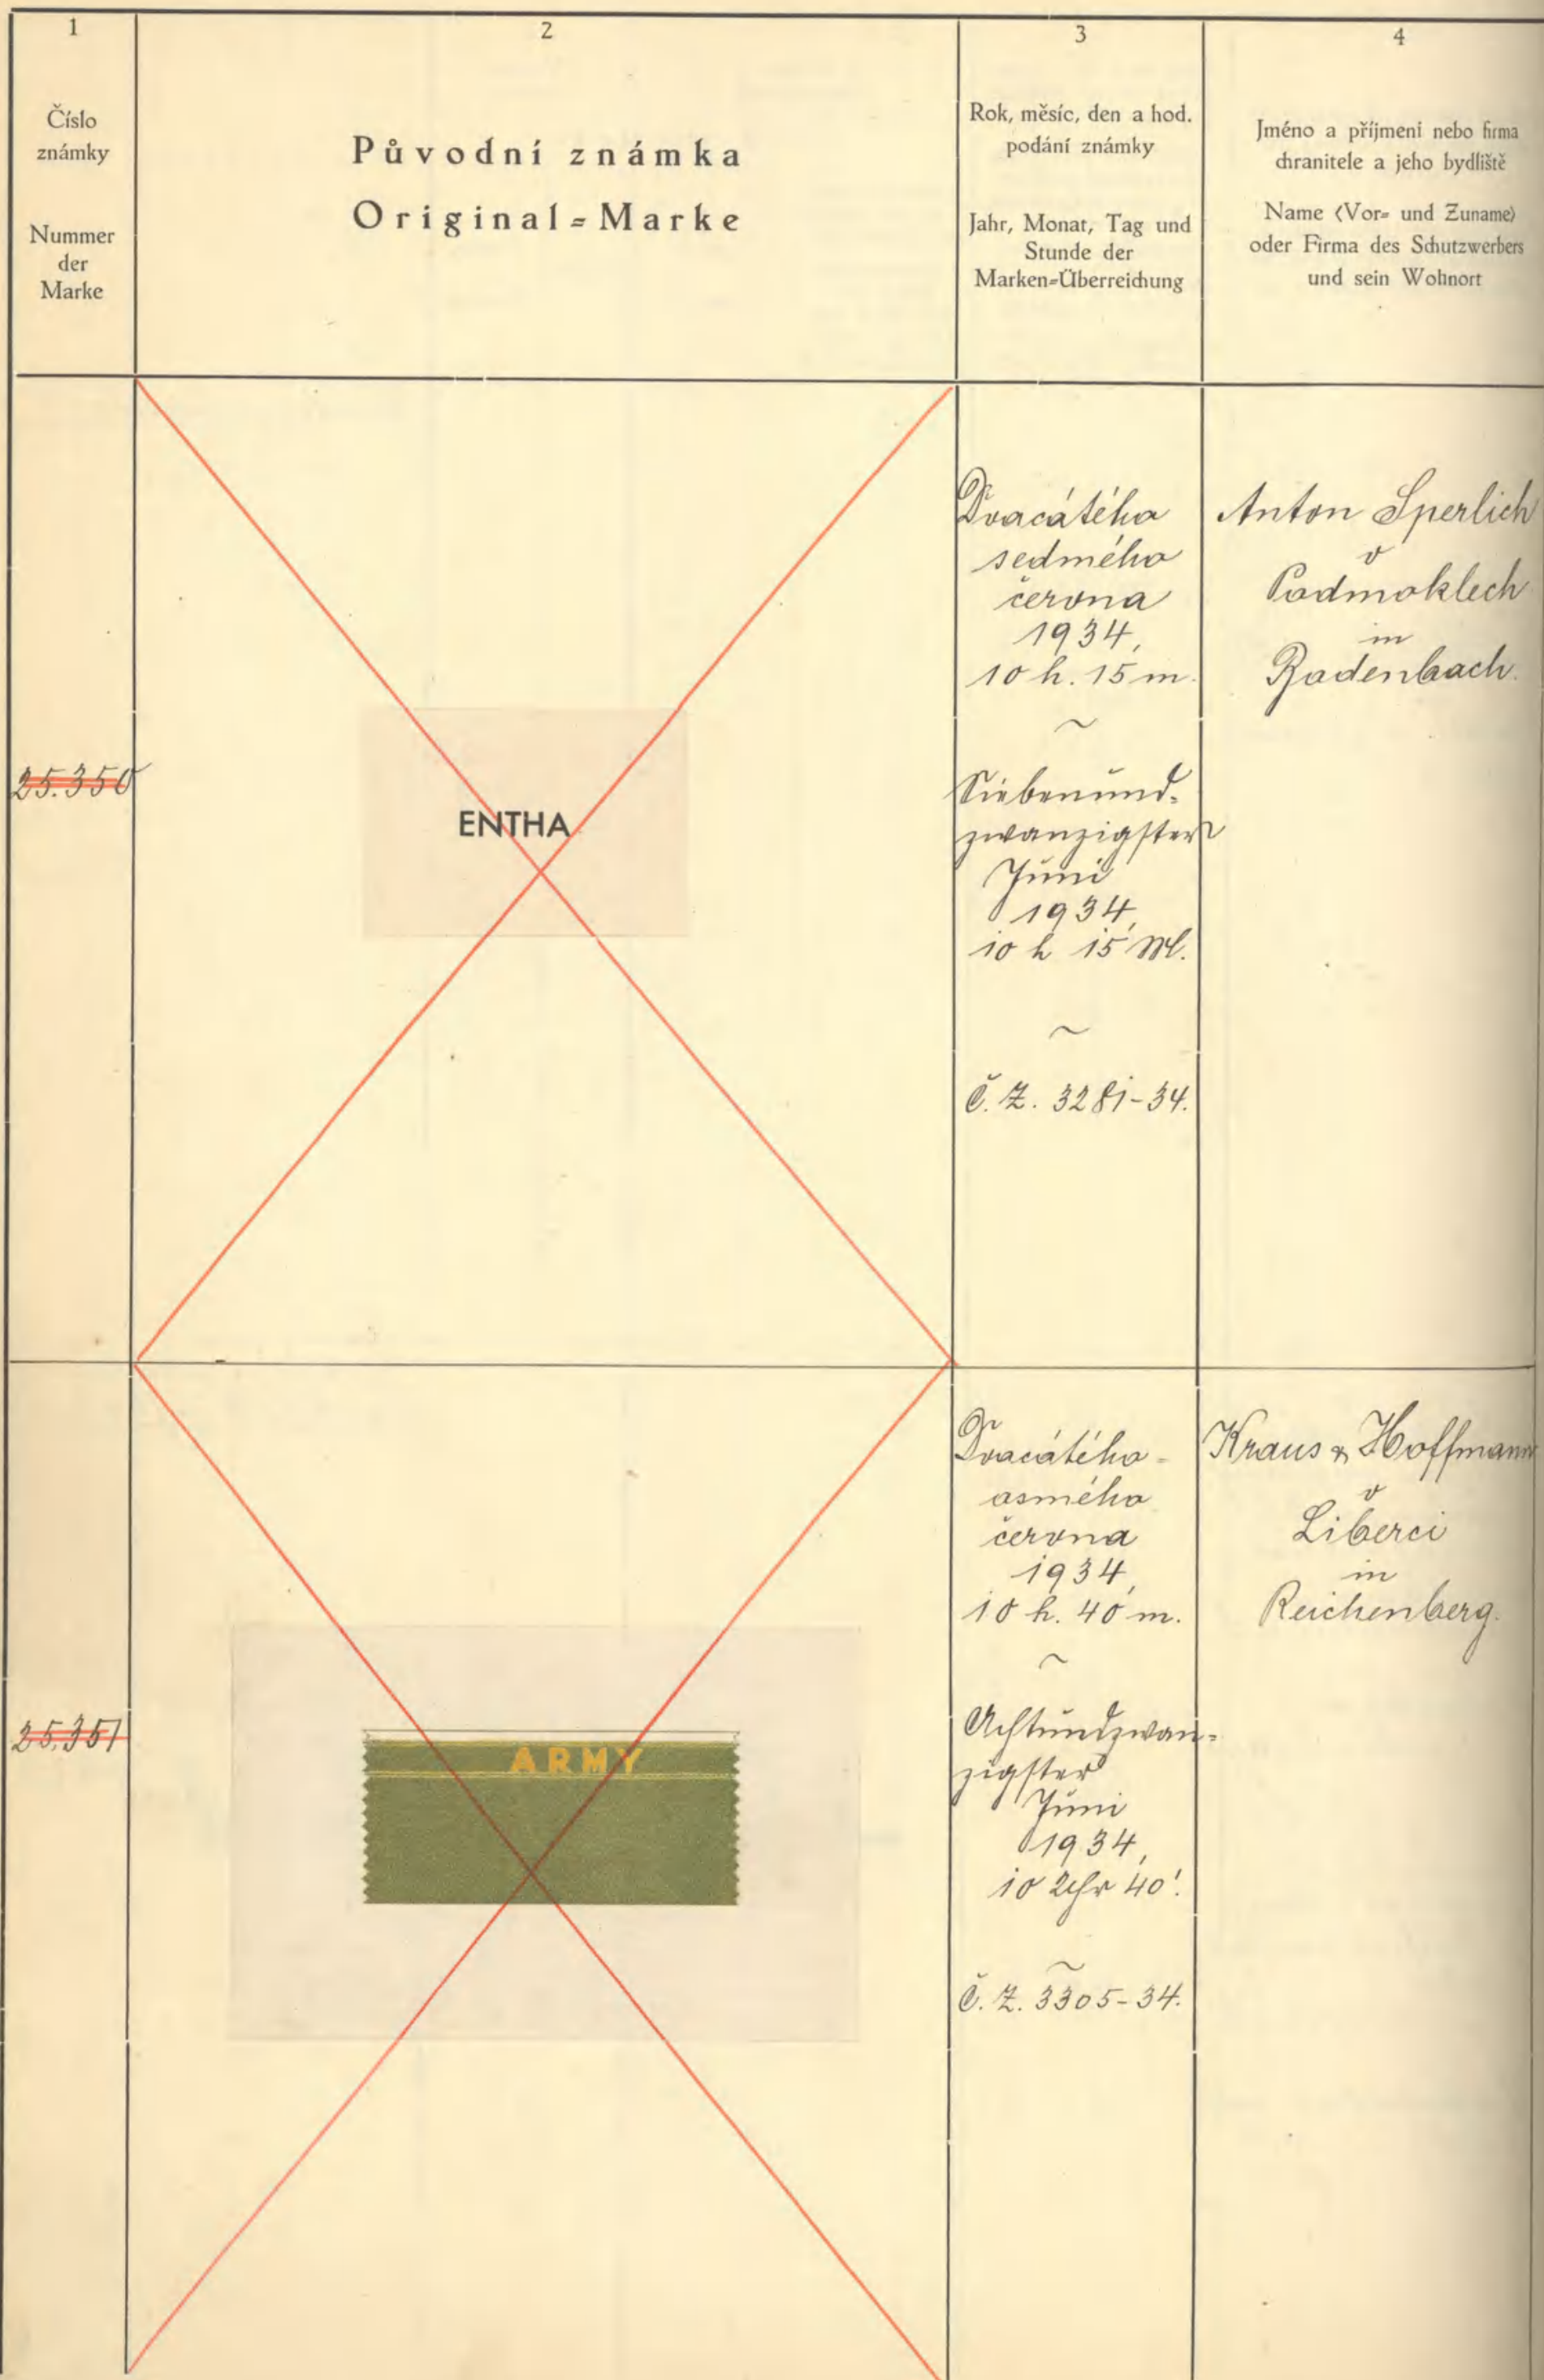 1
Číslo
známky
Nummer
der
Marke
2
Původní známka
Original=Marke
3
Rok, měsíc, den a hod.
podání známky
Jahr, Monat, Tag und
Stunde der
Marken=Überreichung
4
Jméno a příjmení nebo firma
chranitele a jeho bydliště
Name (Vor= und Zuname)
oder Firma des Schutzwerbers
und sein Wohnort
25.350
ENTHA
Dvacátého
sedmého
června
1934,
10 h. 15 m.
~
Siebenund-
zwanzigster
Juni
1934,
10 h 15 M.
~
Č. Z. 3281-34.
Anton Sperlich
v
Podmoklech
in
Bodenbach.
25.351
ARMY
Dvacátého-
osmého
června
1934,
10 h. 40 m.
~
Achtundzwan-
zigster
Juni
1934,
10 Uhr 40'.
~
Č. Z. 3305-34.
Kraus & Hoffmann
v
Liberci
in
Reichenberg.